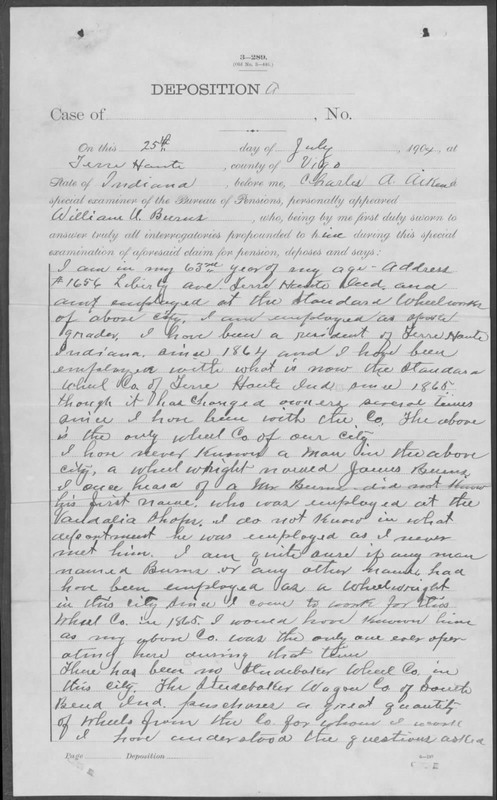 3—289.
(Old No. 3—446.)
DEPOSITION A
Case of , No.
On this 25th day of July , 1904, at
Terre Haute , county of Vigo
State of Indiana , before me, Charles A. Aitken a
special examiner of the Bureau of Pensions, personally appeared
William U. Burns , who, being by me first duly sworn to
answer truly all interrogatories propounded to him during this special
examination of aforesaid claim for pension, deposes and says:
I am in my 63rd year of my age - address
# 1656 Liberty Ave Terre Haute Ind, and
am employed at the Standard Wheel works
of above city. I am employed as spoke
grader. I have been a resident of Terre Haute
Indiana, since 1864 and I have been
employed with what is now the Standard
Wheel Co. of Terre Haute Ind since 1865
though it has changed owners several times
since I have been with the Co. The above
is the only wheel Co. of our city.
I have never known a man in the above
city, a wheel wright named James Burns
I once heard of a Mr Burns - did not know
his first name, who was employed at the
Vandalia Shops. I do not know in what
department he was employed as I never
met him. I am quite sure if any man
named Burns or any other name had
have been employed as a wheelwright
in this city since I came to work for this
Wheel Co. in 1865 I would have known him
as my above Co. was the only one ever oper
ating here during that time
There has been no Studebaker Wheel Co. in
this city. The Studebaker Wagon Co. of South
Bend Ind. purchases a great quantity
of wheels from the Co. for whom I work
I have understood the questions asked
Page Deposition